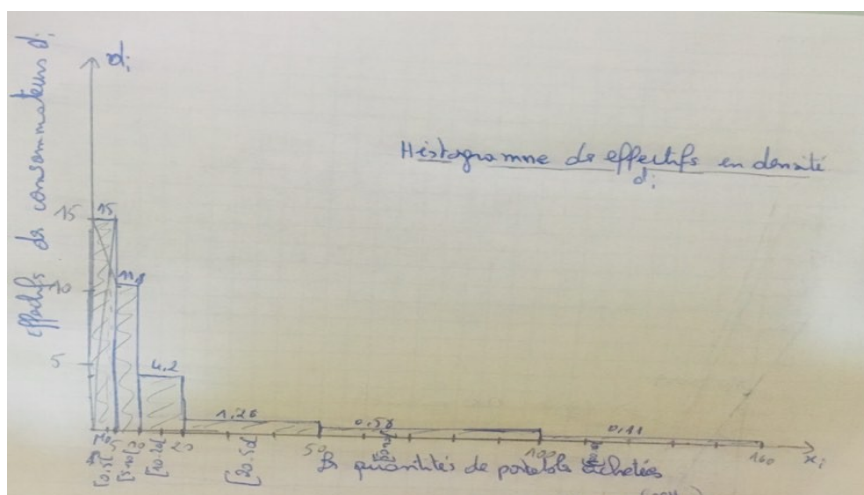 effectifs de consommateurs di
di
Histogramme de effectifs en densité
di
15
15
11,8
10
4,2
5
1,26
0,58
0,11
5
10
20
50
100
160
xi
[0,5[
[5,10[
[10,20[
[20,50[
Les quantités de portable achetées